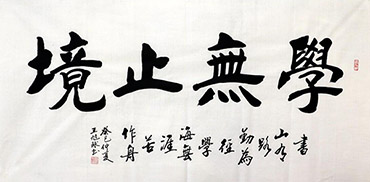 學無止境
書山有路勤為徑學海無涯苦作舟
癸巳仲夏